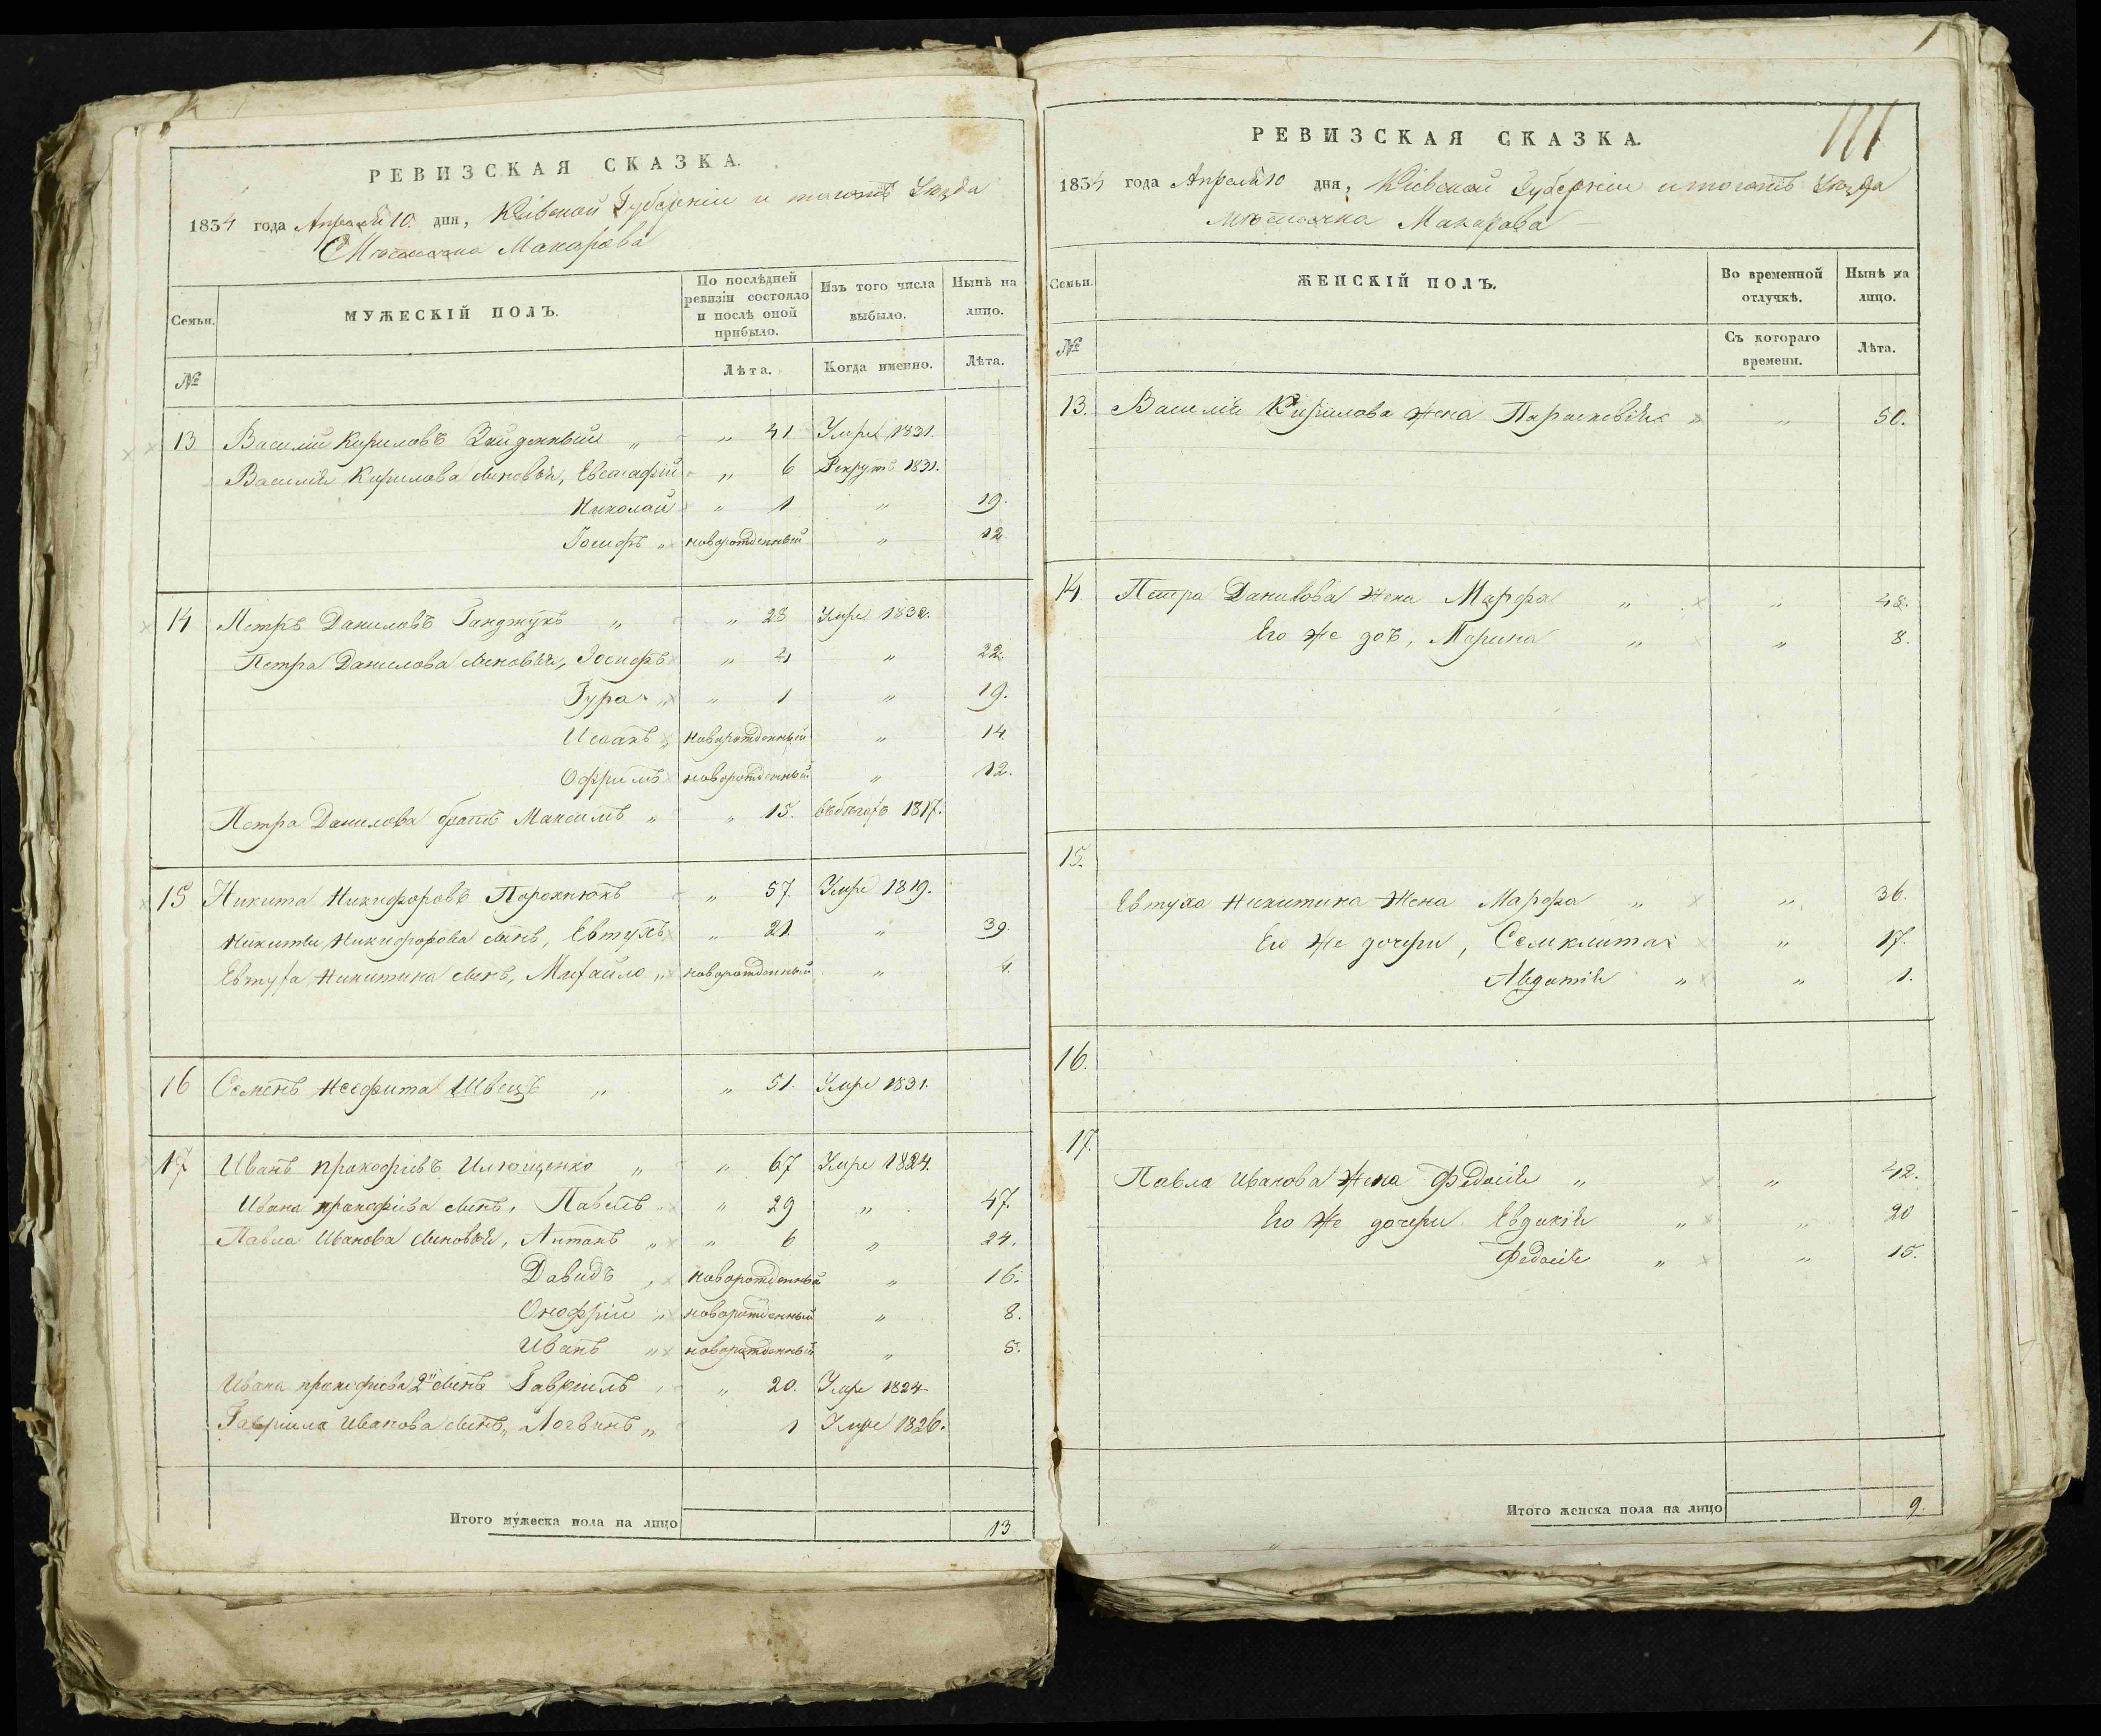 РЕВИЗСКАЯ СКАЗКА.
1834 года Апреля 10. дня, Кіевской Губерніи и тогожъ Уезда
Мѣстечка Макарова
Семьи.
МУЖЕСКІЙ ПОЛЪ.
По послѣдней ревизіи состояло и послѣ оной прибыло.
Изъ того числа выбыло.
Нынѣ на лицо.
№
Лѣта.
Когда именно.
Лѣта.
13 Василій Кириловъ " 41 Умре 1831.
Василія Кирилова сыновья, Евстафій " 6 Рекрутъ 1831.
Николай " 1 " 19.
Іосифъ " новорожденный " 12
14 Петръ Даниловъ Ганджукъ " " 28 Умре 1832.
Петра Данилова сыновья, Іосифъ " 4 " 22
Гура " " 1 " 19.
Исаакъ " новорожденный " 14
Офримъ новорожденный " 12.
Петра Данилова братъ Максимъ " " 15. въ бѣгахъ 1817.
15 Никита Никифоровъ Порохнюкъ " 57. Умре 1819.
Никиты Никифорова сынъ, Евтухъ " 21. " 39.
Евтуха Никитина сынъ, Михайло " новорожденный " 4.
16 Семенъ Неофита Швецъ " " 51. Умре 1831.
17 Иванъ Прокофіевъ " " 67 Умре 1824.
Ивана Прокофіева сынъ, Павелъ " " 29 " 47.
Павла Иванова сыновья, Антонъ " " 6 " 24.
Давидъ " новорожденный " 16.
Онофрій " новорожденный " 8.
Иванъ " новорожденный " 5.
Ивана Прокофіева 2й сынъ Гавріилъ " " 20. Умре 1824
Гавріила Иванова сынъ, Логвинъ " 1 Умре 1826.
Итого мужеска пола на лицо 13.
111
РЕВИЗСКАЯ СКАЗКА.
1834 года Апреля 10 дня, Кіевской Губерніи и тогожъ Уезда
Мѣстечка Макарова
Семьи.
ЖЕНСКІЙ ПОЛЪ.
Во временной отлучкѣ.
Нынѣ на лицо.
№
Съ котораго времени.
Лѣта.
13. Василія Кирилова жена Параскевія " " 50.
14 Петра Данилова жена Марфа " " 48.
Его же дочь, Марина " " 8.
15.
Евтуха Никитина жена Марфа " " 36.
Его же дочери, Семклита " 17.
Авдотія " " 1.
16.
17.
Павла Иванова жена Федосія " " 42.
Его же дочери Евдокія " " 20
Федосія " " 15.
Итого женска пола на лицо 9.